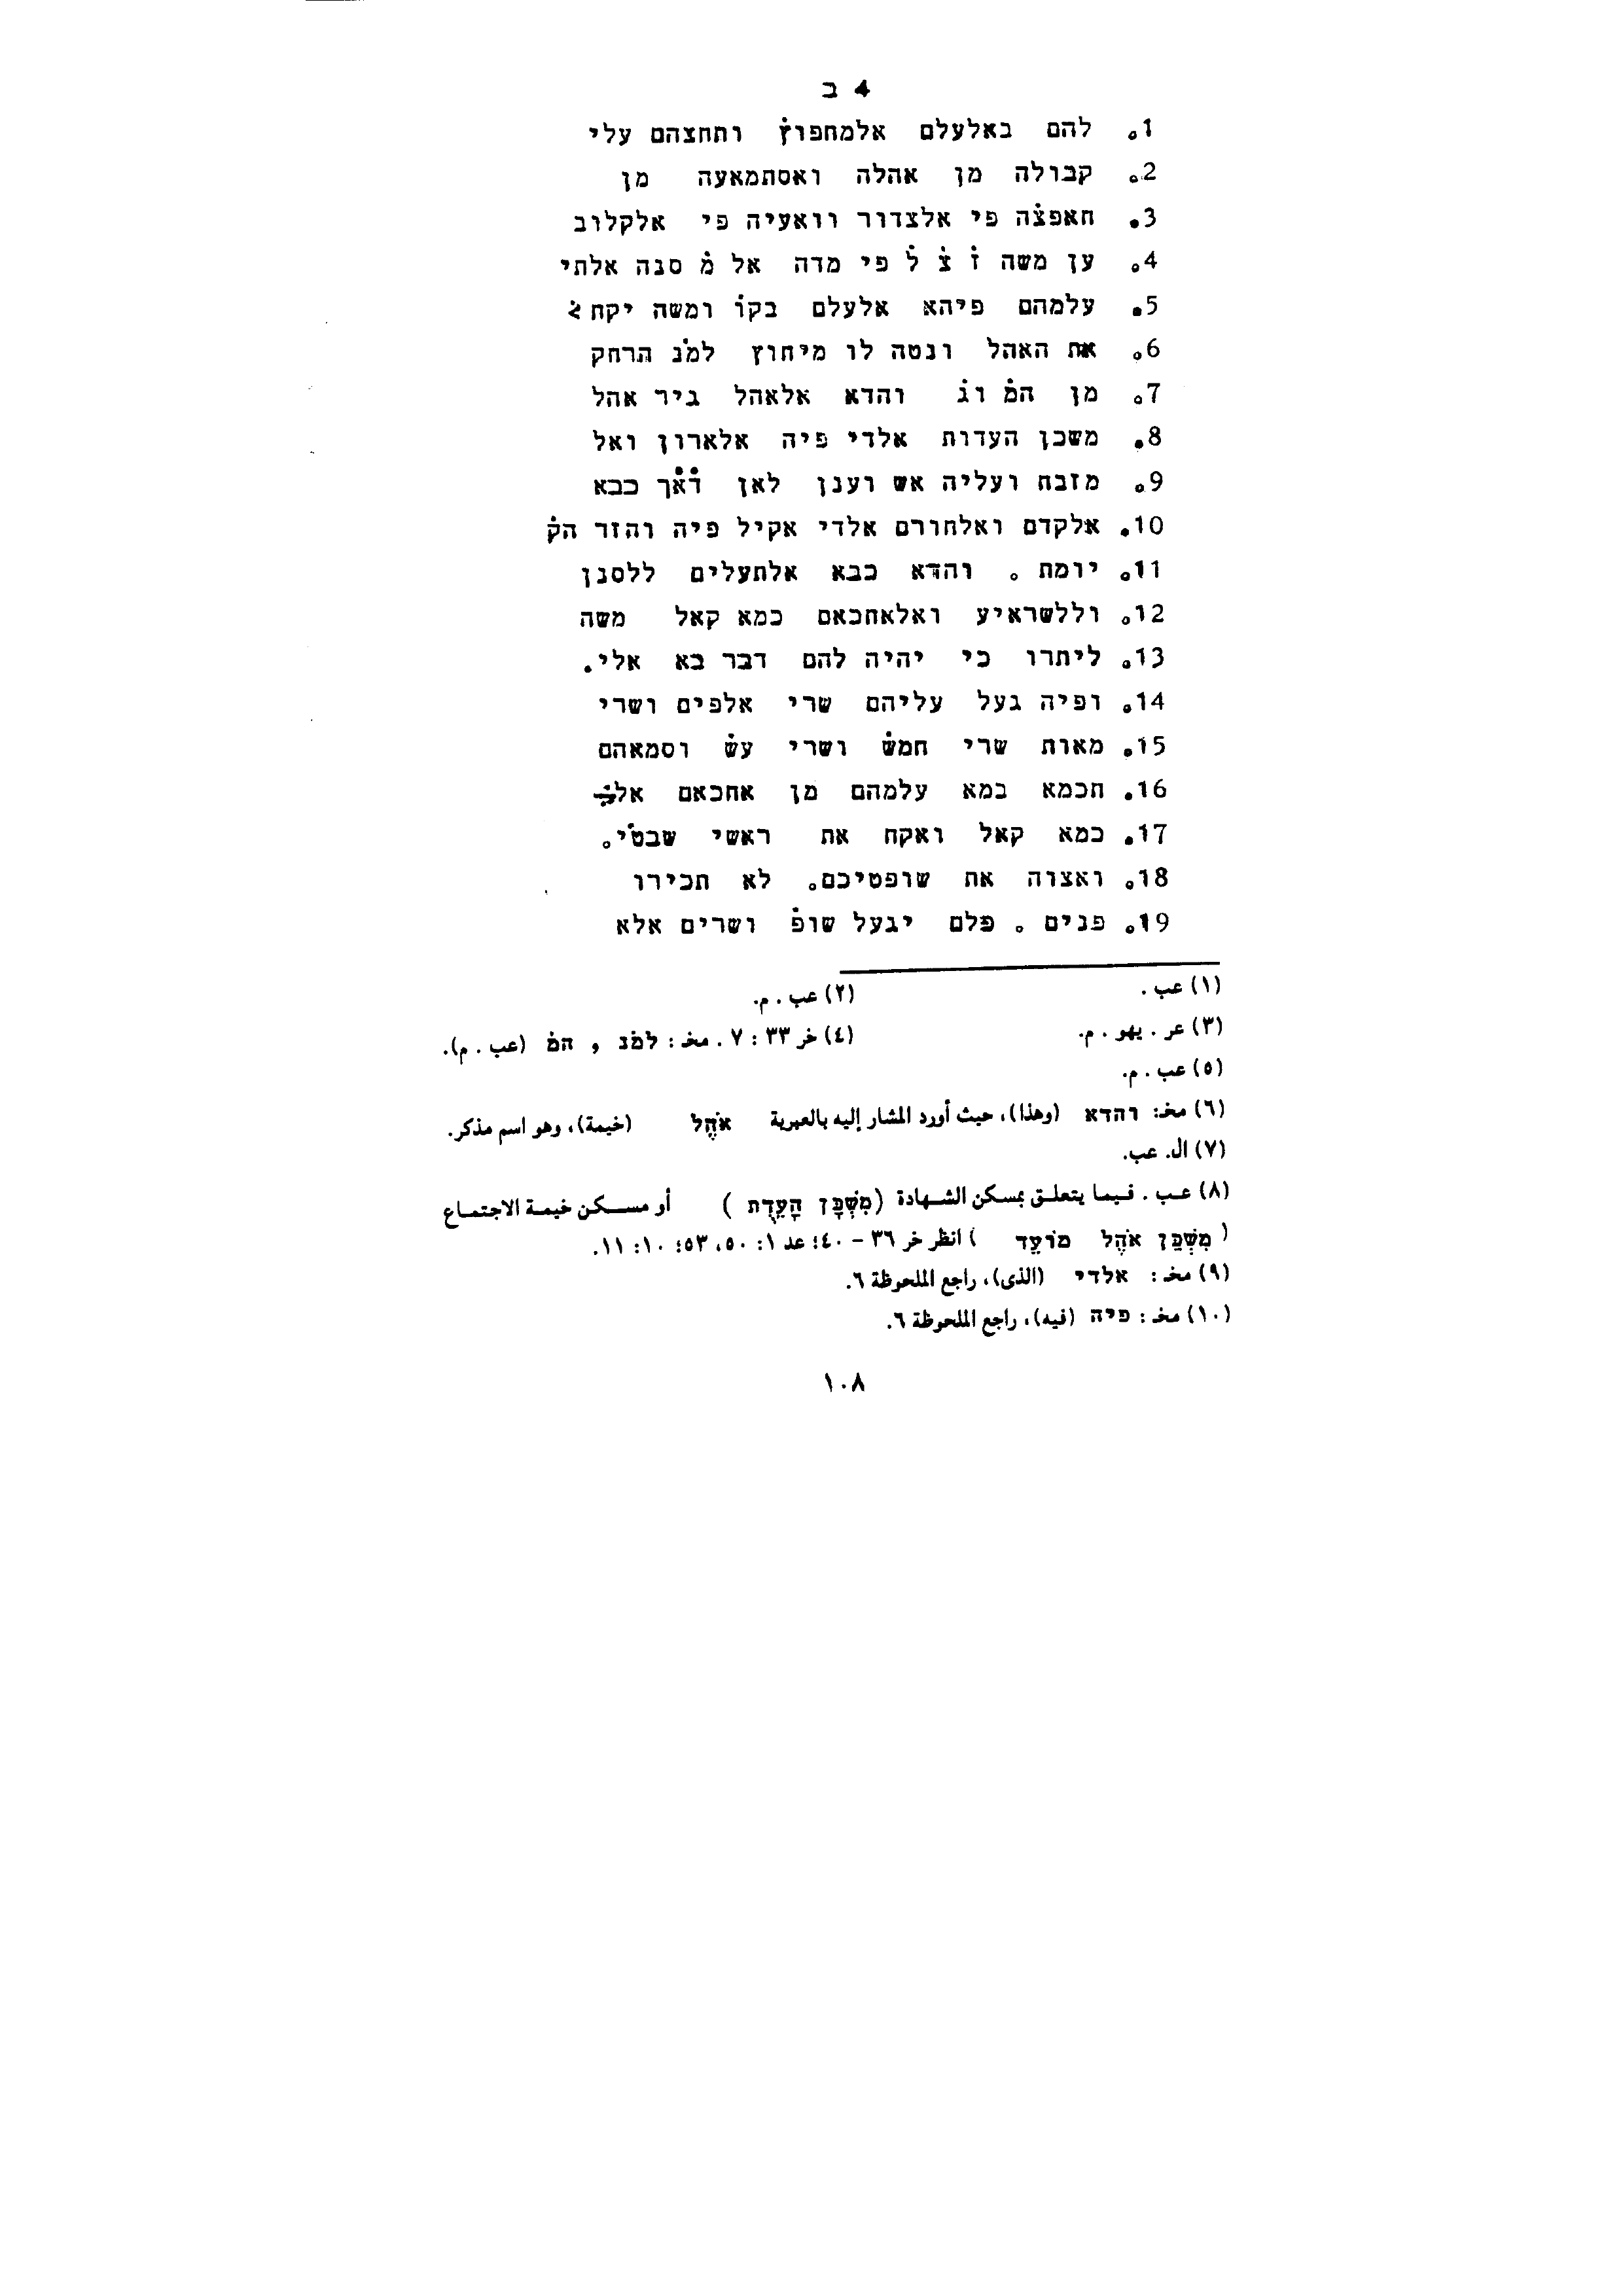 4 ב
1. להם באלעלם אלמחפוץ̇ ותחצהם עלי
2. קבולה מן אהלה ואסתמאעה מן
3. חאפצ̇ה פי אלצדור וואעיה פי אלקלוב
4. ען משה ז̇ צ̇ ל̇ פי מדה אל מ̇ סנה אלתי
5. עלמהם פיהא אלעלם בקו̇ ומשה יקח
6. את האהל ונטה לו מיחוץ למ̇נ הרחק
7. מן המ̇ וג̇ והדא אלאהל גיר אהל
8. משכן העדות אלדי פיה אלארון ואל
9. מזבח ועליה אש וענן לאן ד̇א̇ך כבא
10. אלקדם ואלחורם אלדי אקיל פיה והזר הק̇
11. יומת . והדא כבא אלתעלים ללסנן
12. וללשראיע ואלאחכאם כמא קאל משה
13. ליתרו כי יהיה להם דבר בא אלי.
14. ופיה געל עליהם שרי אלפים ושרי
15. מאות שרי חמש̇ ושרי עש̇ וסמאהם
16. חכמא במא עלמהם מן אחכאם
17. כמא קאל ואקח את ראשי שבט̇י.
18. ואצוה את שופטיכם. לא תכירו
19. פנים . פלם יגעל שופ̇ ושרים אלא
(١) عب . (٢) عب . م.
(٣) عر . يهو . م. (٤) خر ٣٣ : ٧ . مخـ : למ̇נ , המ̇ (عب . م).
(٥) عب . م.
(٦) مخـ: והדא (وهذا)، حيث أورد المشار إليه بالعبرية אֹהֶל (خيمة)، وهو اسم مذكر.
(٧) ال. عب.
(٨) عب . فيما يتعلق بمسكن الشهادة (מִשְׁכַּן הָעֵדֻת ) أو مسكن خيمة الاجتماع
( מִשְׁכַּן אֹהֶל מוֹעֵד ) انظر خر ٣٦ – ٤٠؛ عد ١: ٥٠، ٥٣؛ ١٠: ١١.
(٩) مخـ : אלדי (الذى)، راجع الملحوظة ٦.
(١٠) مخـ : פיה (فيه)، راجع الملحوظة ٦.
١٠٨